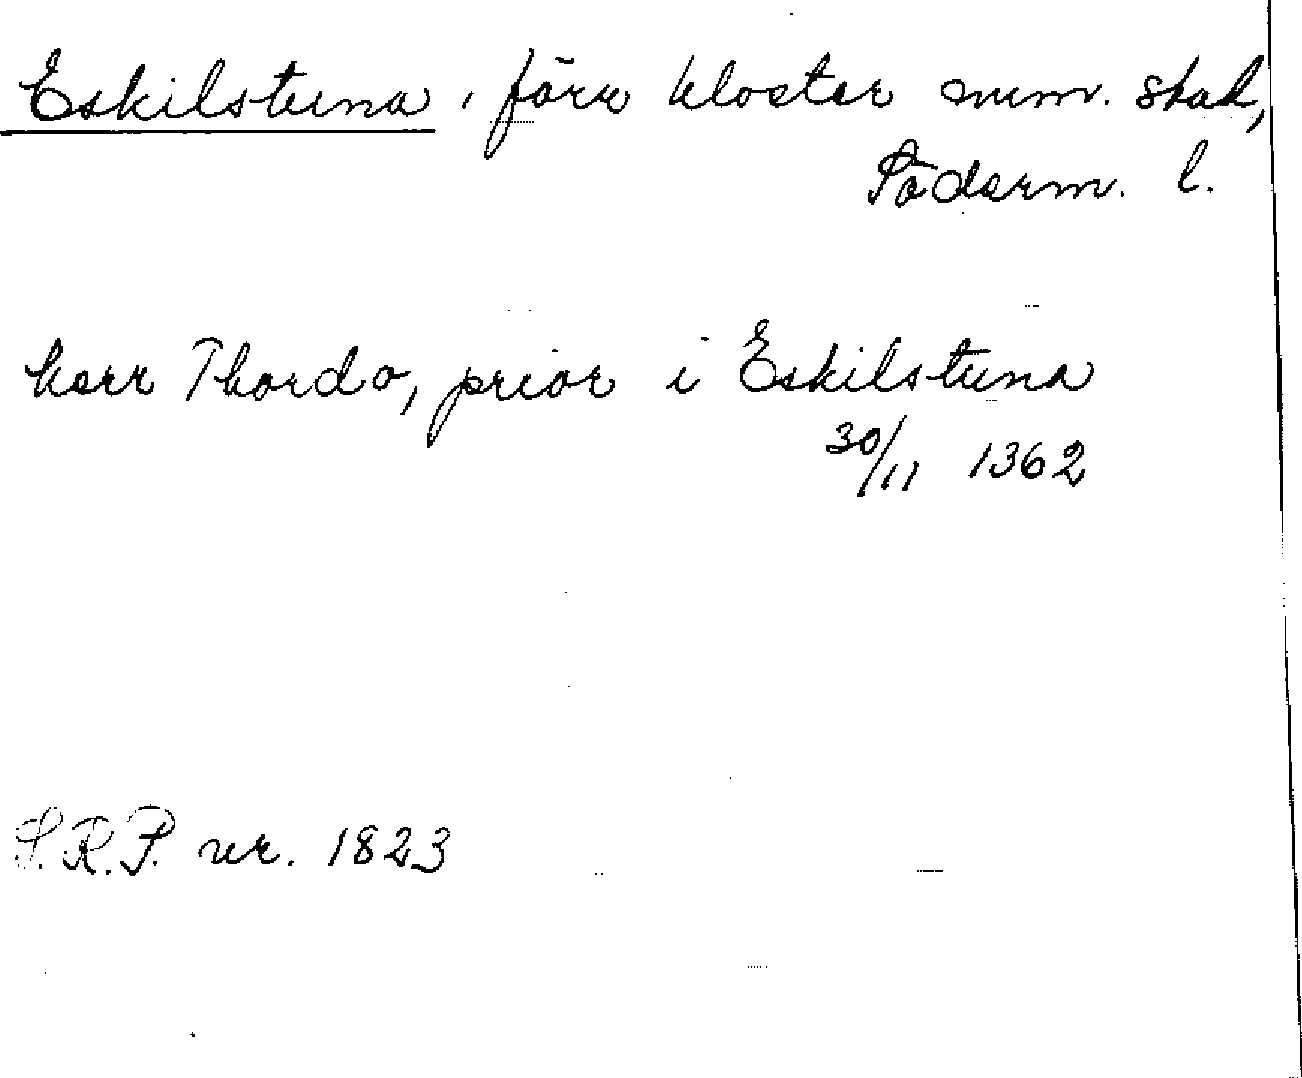 Eskilstuna, förr kloster num. stad,
Söderm. l.
herr Thordo, prior i Eskilstuna
30/11 1362
S.R.P. nr. 1823